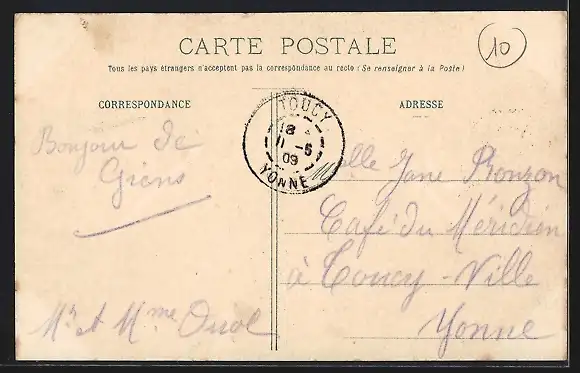 CARTE POSTALE
Tous les pays étrangers n'acceptent pas la correspondance au recto (Se renseigner à la Poste)
CORRESPONDANCE
ADRESSE
10
TOUCY
18
11 -5
09
YONNE
Bonjour de
Giens
Mr et Mme
Mlle Jane Ronzon
Café du Méridien
à Toucy-Ville
Yonne